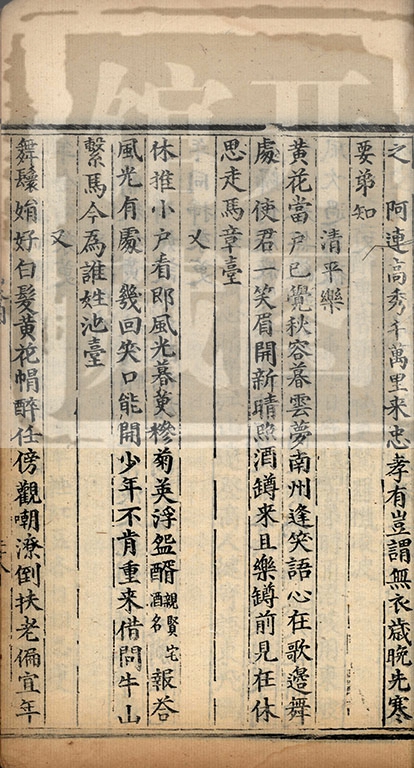 之　阿連高秀千萬里来忠孝有豈謂無衣歳晩先寒
要弟知
清平樂
黄花當戸已覺秋容暮雲夢南州逢笑語心在歌邉舞
處　使君一笑眉開新晴照酒罇来且樂罇前見在休
思走馬章臺
又
休推小戸看即風光暮萸糝菊英浮盌醑親賢宅酒名　報荅
風光有處　幾回笑口能開少年不肯重来借問牛山
繫馬今爲誰姓池臺
又
舞鬟娟好白髮黄花帽醉任傍觀嘲潦倒扶老偏宜年